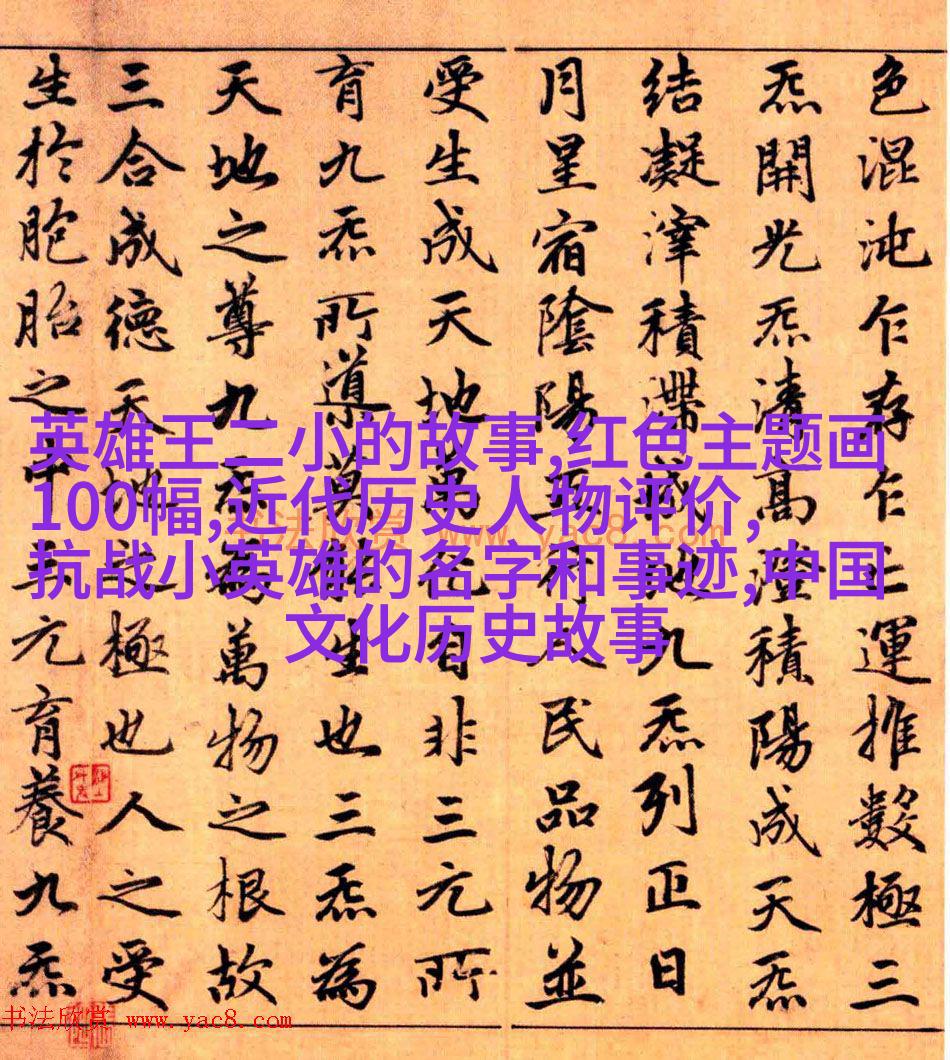 色混沌乍存乍亡運推數極三
炁開光炁清高澄積陽成天炁
結凝滓積滯成地九炁列正日
月星宿陰陽五行人民品物並
受生成天地萬化自非三元所
育九炁所導莫能生也三炁為
天地之尊九炁為萬物之根故
三合成德天地之極也人之受
生於胞胎之中三元育養九炁
英雄王二小的故事,红色主题画
100幅,近代历史人物评价,
抗战小英雄的名字和事迹,中国
文化历史故事
书法欣赏 www.yac8.com
书法欣赏 www.yac8.com